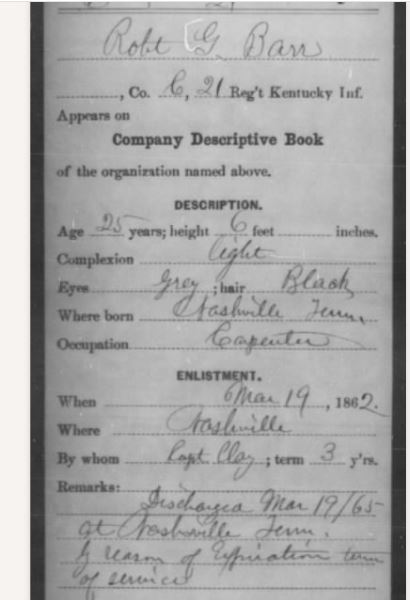 Robt G. Barr
, Co. C, 21 Reg't Kentucky Inf.
Appears on
Company Descriptive Book
of the organization named above.
DESCRIPTION.
Age 25 years; height 6 feet inches.
Complexion light
Eyes Grey ; hair Black
Where born Nashville Tenn.
Occupation Carpenter
ENLISTMENT.
When Mar 19 , 1862.
Where Nashville
By whom Capt Clay ; term 3 y'rs.
Remarks:
Discharged Mar 19/65
at Nashville Tenn.
by reason of Expiration term
of service